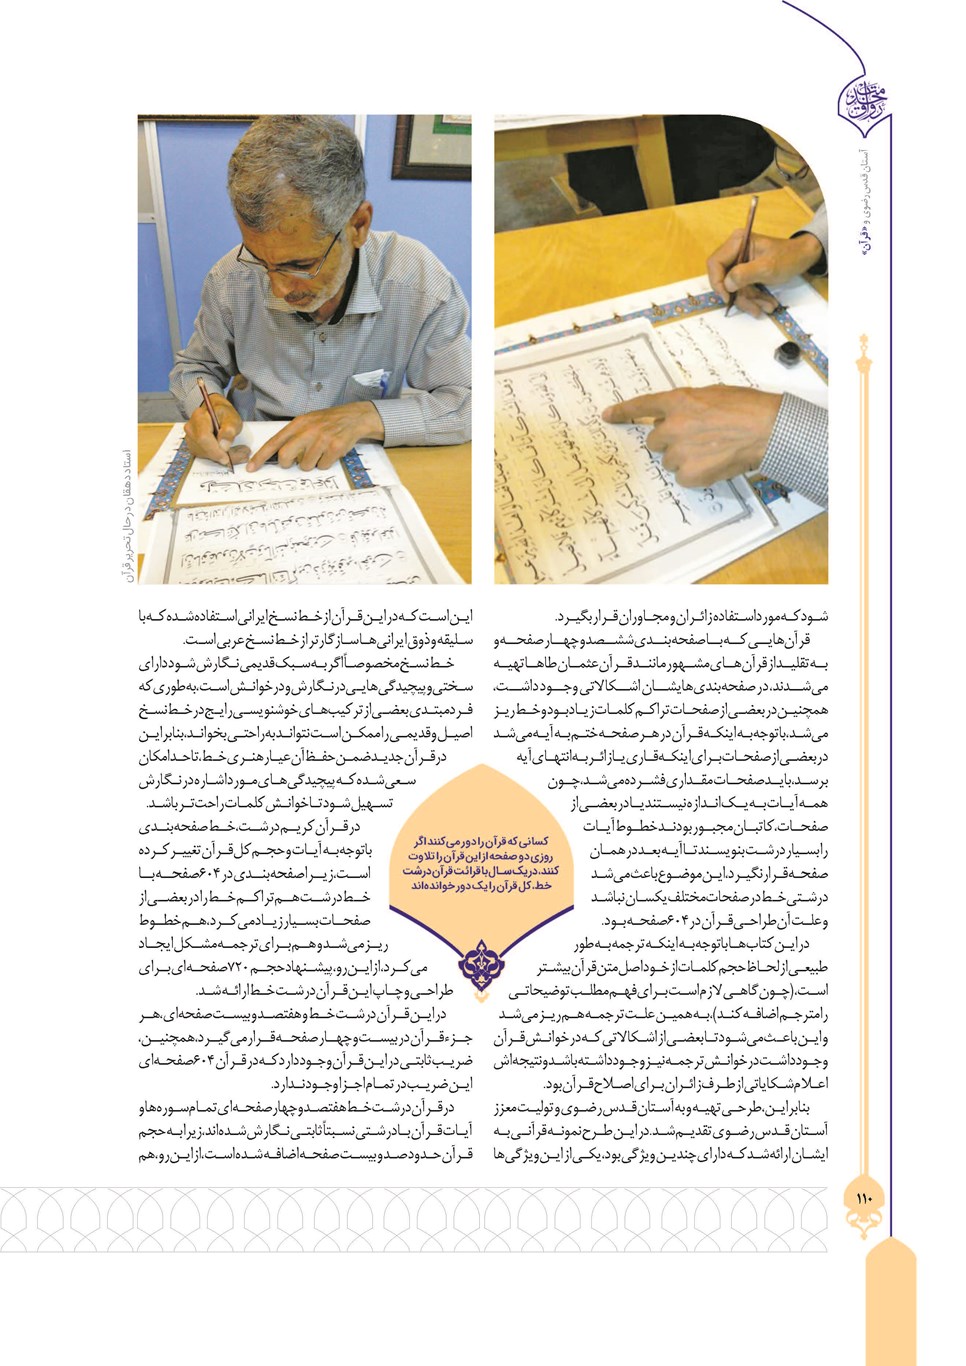 آستان قدس رضوی و «قرآن»
استاد دهقان در حال تحریر قرآن
شود که مورد استفاده زائران و مجاوران قرار بگیرد.
قرآن‌هایی که با صفحه‌بندی ششصد و چهار صفحه و
به تقلید از قرآن‌های مشهور مانند قرآن عثمان طاها تهیه
می‌شدند، در صفحه‌بندی‌هایشان اشکالاتی وجود داشت،
همچنین در بعضی از صفحات تراکم کلمات زیاد بود و خط ریز
می‌شد، با توجه به اینکه قرآن در هر صفحه ختم به آیه می‌شد
در بعضی از صفحات برای اینکه قاری یا زائر به انتهای آیه
برسد، باید صفحات مقداری فشرده می‌شد، چون
همه آیات به یک اندازه نیستند یا در بعضی از
صفحات، کاتبان مجبور بودند خطوط آیات
را بسیار درشت بنویسند تا آیه بعد در همان
صفحه قرار نگیرد، این موضوع باعث می‌شد
درشتی خط در صفحات مختلف یکسان نباشد
و علت آن طراحی قرآن در ۶۰۴ صفحه بود.
در این کتاب‌ها با توجه به اینکه ترجمه به طور
طبیعی از لحاظ حجم کلمات از خود اصل متن قرآن بیشتر
است، (چون گاهی لازم است برای فهم مطلب توضیحاتی
را مترجم اضافه کند)، به همین علت ترجمه هم ریز می‌شد
و این باعث می‌شود تا بعضی از اشکالاتی که در خوانش قرآن
وجود داشت در خوانش ترجمه نیز وجود داشته باشد و نتیجه‌اش
اعلام شکایاتی از طرف زائران برای اصلاح قرآن بود.
بنابراین، طرحی تهیه و به آستان قدس رضوی و تولیت معزز
آستان قدس رضوی تقدیم شد. در این طرح نمونه قرآنی به
ایشان ارائه شد که دارای چندین ویژگی بود، یکی از این ویژگی‌ها
این است که در این قرآن از خط نسخ ایرانی استفاده شده که با
سلیقه و ذوق ایرانی‌ها سازگارتر از خط نسخ عربی است.
خط نسخ مخصوصاً اگر به سبک قدیمی نگارش شود دارای
سختی و پیچیدگی‌هایی در نگارش و در خوانش است، به طوری که
فرد مبتدی بعضی از ترکیب‌های خوشنویسی رایج در خط نسخ
اصیل و قدیمی را ممکن است نتواند به راحتی بخواند، بنابراین
در قرآن جدید ضمن حفظ آن عیار هنری خط، تا حد امکان
سعی شده که پیچیدگی‌های مورد اشاره در نگارش
تسهیل شود تا خوانش کلمات راحت‌تر باشد.
در قرآن کریم درشت، خط صفحه‌بندی
با توجه به آیات و حجم کل قرآن تغییر کرده
است، زیرا صفحه‌بندی در ۶۰۴ صفحه با
خط درشت هم تراکم خط را در بعضی از
صفحات بسیار زیاد می‌کرد، هم خطوط
ریز می‌شد و هم برای ترجمه مشکل ایجاد
می‌کرد، از این رو، پیشنهاد حجم ۷۲۰ صفحه‌ای برای
طراحی و چاپ این قرآن درشت خط ارائه شد.
در این قرآن درشت خط و هفتصد و بیست صفحه‌ای، هر
جزء قرآن در بیست و چهار صفحه قرار می‌گیرد، همچنین،
ضریب ثابتی در این قرآن وجود دارد که در قرآن ۶۰۴ صفحه‌ای
این ضریب در تمام اجزا وجود ندارد.
در قرآن درشت خط هفتصد و چهار صفحه‌ای تمام سوره‌ها و
آیات قرآن با درشتی نسبتاً ثابتی نگارش شده‌اند، زیرا به حجم
قرآن حدود صد و بیست صفحه اضافه شده است، از این رو، هم
کسانی که قرآن را دور می‌کنند اگر
روزی دو صفحه از این قرآن را تلاوت
کنند، در یک سال با قرائت قرآن درشت
خط، کل قرآن را یک دور خوانده‌اند
۱۱۰